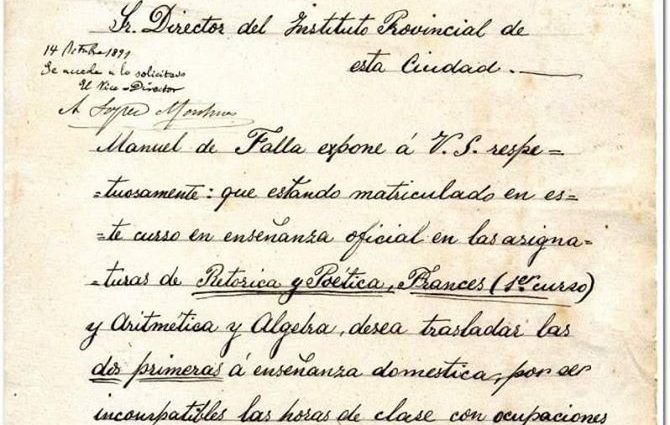 Sr. Director del Instituto Provincial de
esta Ciudad.
14 Octubre 1891
Se accede a lo solicitado
El Vice-Director
A
Manuel de Falla expone á V. S. respe=
=tuosamente: que estando matriculado en es=
=te curso en enseñanza oficial en las asigna=
=turas de Retorica y Poética, Frances (1er curso)
y Aritmética y Algebra, desea trasladar las
dos primeras á enseñanza domestica, por ser
incompatibles las horas de clase con ocupaciones